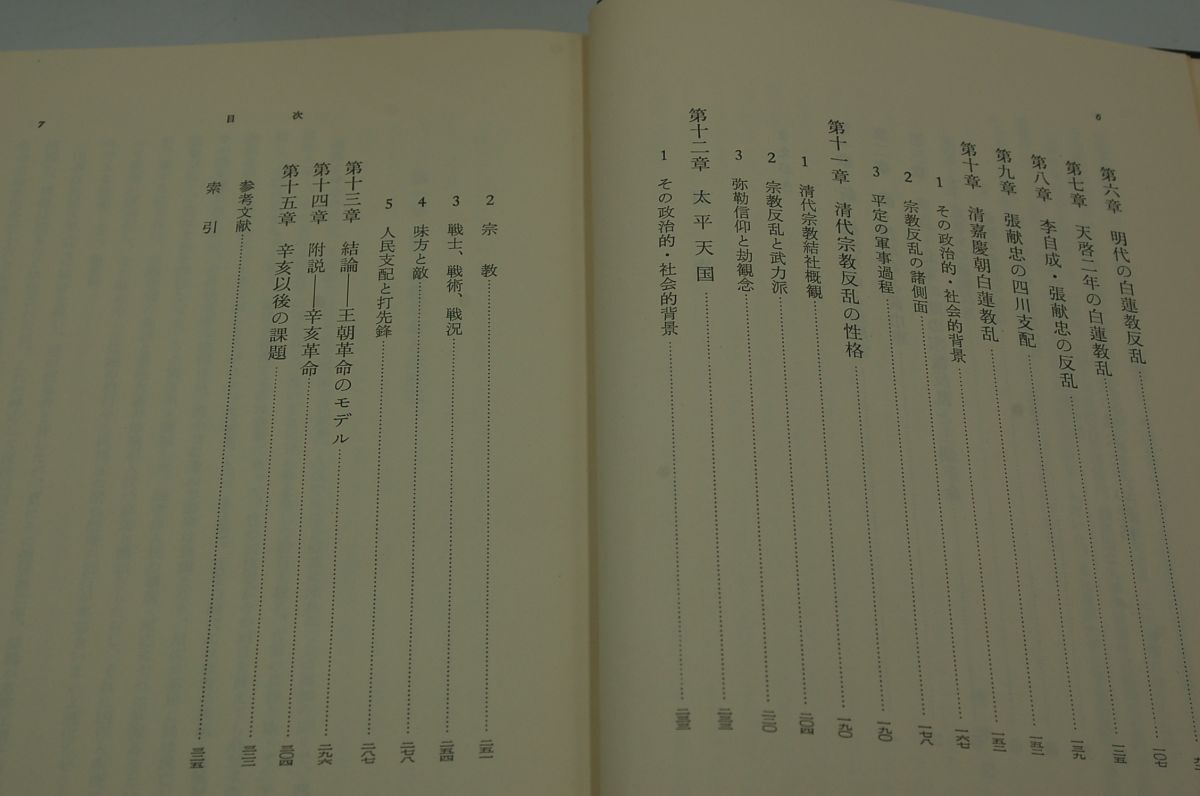 6
第六章 明代の白蓮教反乱
第七章 天啓二年の白蓮教乱……一〇七
第八章 李自成・張献忠の反乱……一二五
第九章 張献忠の四川支配……一三九
第十章 清嘉慶朝白蓮教乱……一五二
1 その政治的・社会的背景……一五二
2 宗教反乱の諸側面……一六七
3 平定の軍事過程……一七八
第十一章 清代宗教反乱の性格……一九〇
1 清代宗教結社概観……一九〇
2 宗教反乱と武力派……二〇四
3 弥勒信仰と劫観念……二二〇
第十二章 太平天国……二三三
1 その政治的・社会的背景……二三三
2 宗教……二五一
3 戦士、戦術、戦況……二五四
4 味方と敵……二七八
5 人民支配と打先鋒……二八七
第十三章 結論――王朝革命のモデル……二九六
第十四章 附説――辛亥革命……三〇四
第十五章 辛亥以後の課題
参考文献……三二五
索引
目次
7